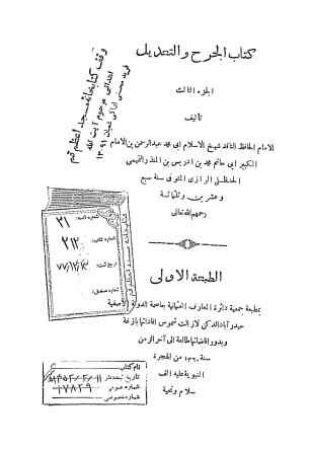 كتاب الجرح والتعديل
الجزء الثالث
تأليف
الامام الحافظ الناقد شيخ الاسلام ابى محمد عبدالرحمن بن الامام
الكبير ابى حاتم محمد بن ادريس بن المنذر التميمى
الحنظلى الرازى المتوفى سنة سبع
وعشرين وثلثمائة
رحمهم الله تعالى
الطبعة الاولى
بمطبعة جمعية دائرة المعارف العثمانية بعاصمة الدولة الآصفية
حيدرآباد الدكن لازالت شموس افاداتها بازغة
وبدور افاضاتها طالعة الى آخر الزمن
سنة من الهجرة
النبوية عليه الف
سلام وتحية
وقف كتابخانه مسجد اعظم قم
۲۱
۲۱۲
نام كتاب
تاريخ ثبت
شماره عمومى ۱۷۸۲۹
شماره خصوصى